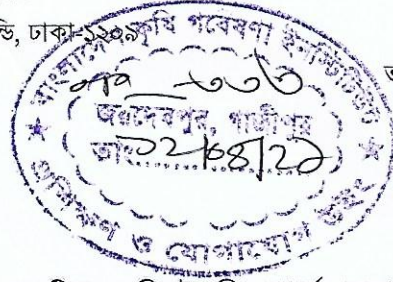 ন্ডি, ঢাকা-১২০৯
বাংলাদেশ কৃষি গবেষণা ইনস্টিটিউট
৩৩৬
জয়দেবপুর, গাজীপুর
তাং ১২/০৪/২১
প্রশিক্ষণ ও যোগাযোগ উইং